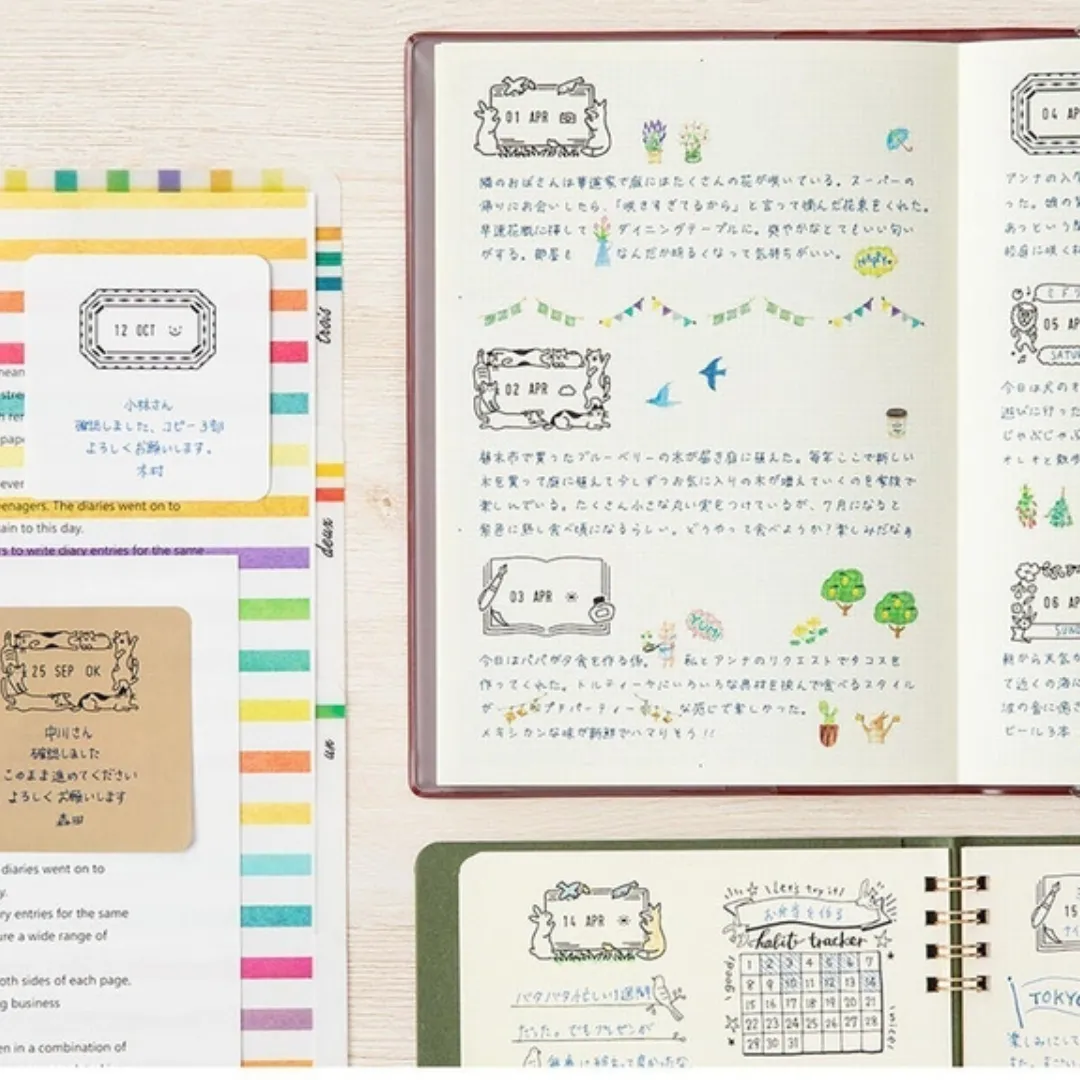 12 OCT
小林さん
確認しました、コピー3部
よろしくお願いします。
木村
mean
pape
ever
eenagers. The diaries went on to
ain to this day.
rs to write diary entries for the same
25 SEP OK
中川さん
確認しました
このまま進めてください
よろしくお願いします
森田
diaries went on to
y.
ry entries for the same
ure a wide range of
oth sides of each page.
g business
en in a combination of
trois
deux
un
01 APR
隣のおばさんは華道家で庭にはたくさんの花が咲いている。スーパーの
帰りにお会いしたら、「咲きすぎてるから」と言って摘んだ花束をくれた。
早速花瓶に挿して ダイニングテーブルに。爽やかなとてもいい匂い
がする。部屋も なんだか明るくなって気持ちがいい。
HAPPY
02 APR
植木市で買ったブルーベリーの木が届き庭に植えた。毎年ここで新しい
木を買って庭に植えて少しずつお気に入りの木が増えていくのを家族で
楽しんでいる。たくさん小さな丸い実をつけているが、7月になると
紫色に熟し食べ頃になるらしい。どうやって食べようか?楽しみだなぁ
03 APR
YUM!
今日はパパが夕食を作る係。 私とアンナのリクエストでタコスを
作ってくれた。トルティーヤにいろいろな具材を挟んで食べるスタイル
が プチパーティー な感じで楽しかった。
メキシカンな味が新鮮でハマりそう!!
04 AP
アンナの入
った。娘の
あっという間
校庭に咲く
05 AP
SATU
今日は犬の
遊びに行った
じゃぶじゃぶ
そしそと散歩
06 AP
SUN
朝から天気が
て近くの海に
ビール3本
14 APR
バタバタ忙しい1週間
だった。でもプレゼンが
無事に終って良かったな
Let's try it!
お弁当を作る
habit tracker
1 2 3 4 5 6 7
8 9 10 11 12 13 14
15 16 17 18 19 20 21
22 23 24 25 26 27 28
29 30 31
good!
nice!
15
TOKYO
楽しみにして